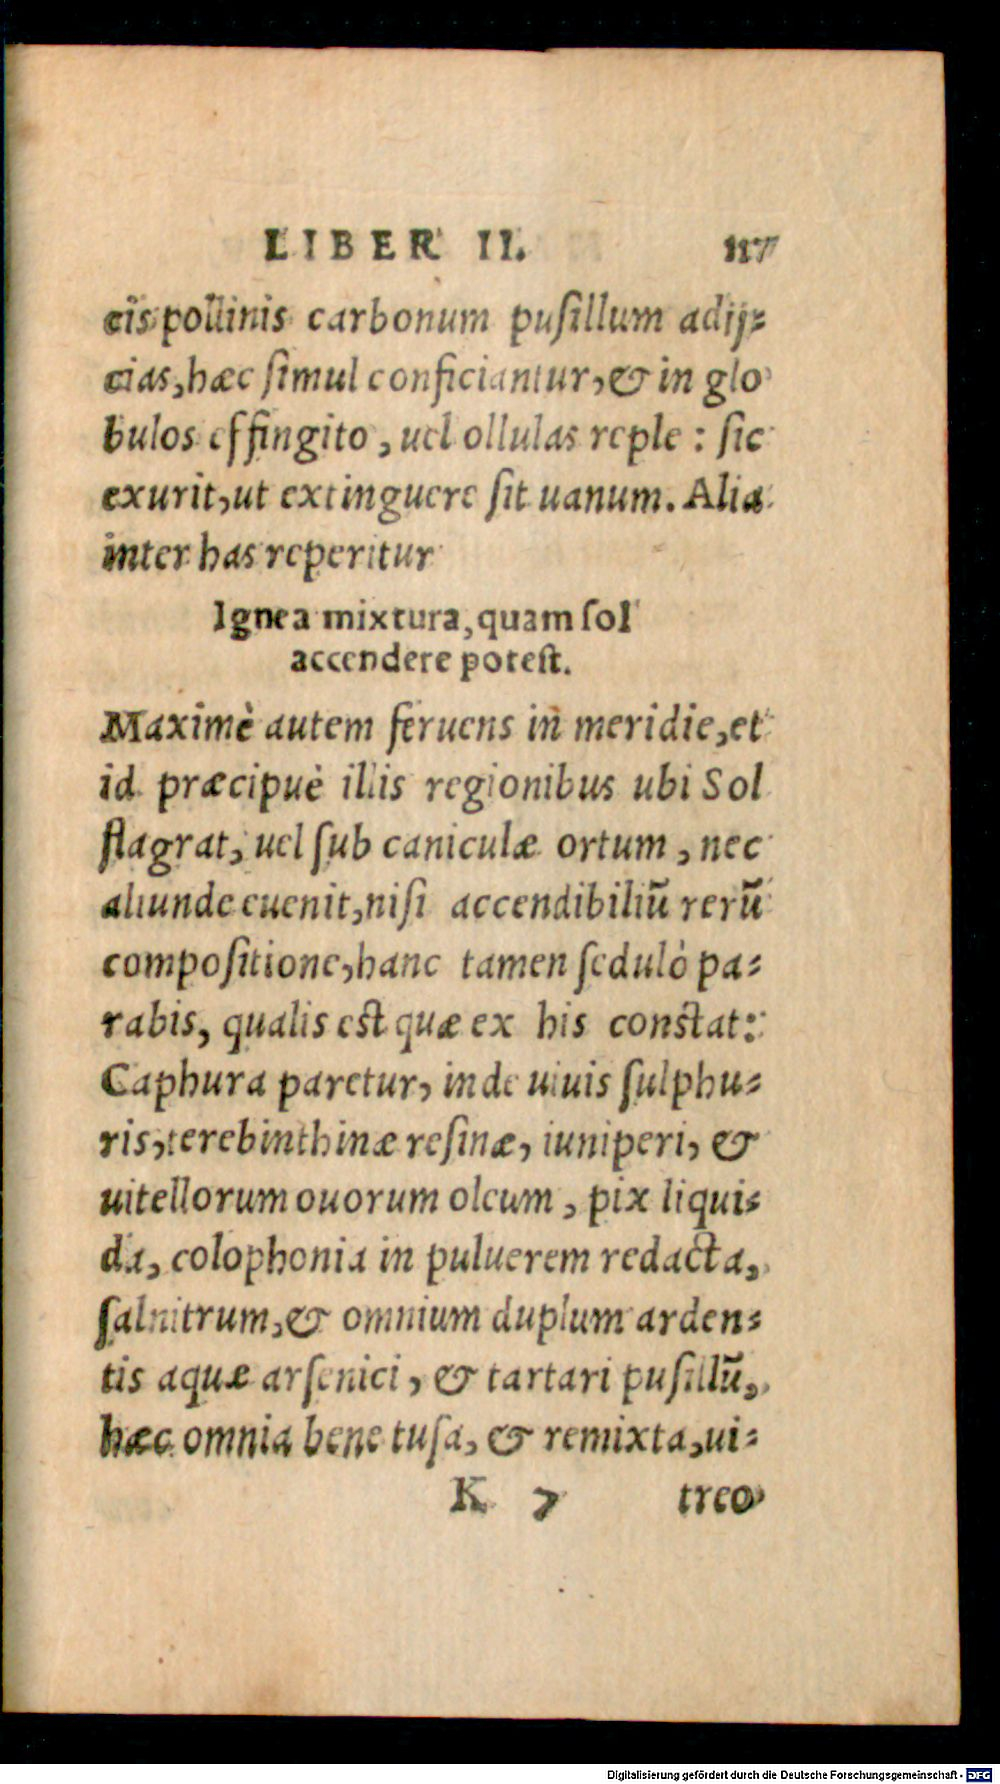 LIBER II. 117
cis pollinis carbonum pusillum adij⸗
cias, hæc simul conficiantur, & in glo
bulos effingito, uel ollulas reple : sic
exurit, ut extinguere sit uanum. Alia
inter has reperitur
Ignea mixtura, quam sol
accendere potest.
Maximè autem feruens in meridie, et
id præcipuè illis regionibus ubi Sol
flagrat, uel sub caniculæ ortum, nec
aliunde euenit, nisi accendibiliū rerū
compositione, hanc tamen sedulò pa⸗
rabis, qualis est quæ ex his constat:
Caphura paretur, inde uiuis sulphu⸗
ris, terebinthinæ resinæ, iuniperi, &
uitellorum ouorum oleum, pix liqui⸗
da, colophonia in puluerem redacta,
salnitrum, & omnium duplum arden⸗
tis aquæ arsenici, & tartari pusillū,
hæc omnia bene tusa, & remixta, ui⸗
K 7 treo
Digitalisierung gefördert durch die Deutsche Forschungsgemeinschaft - DFG